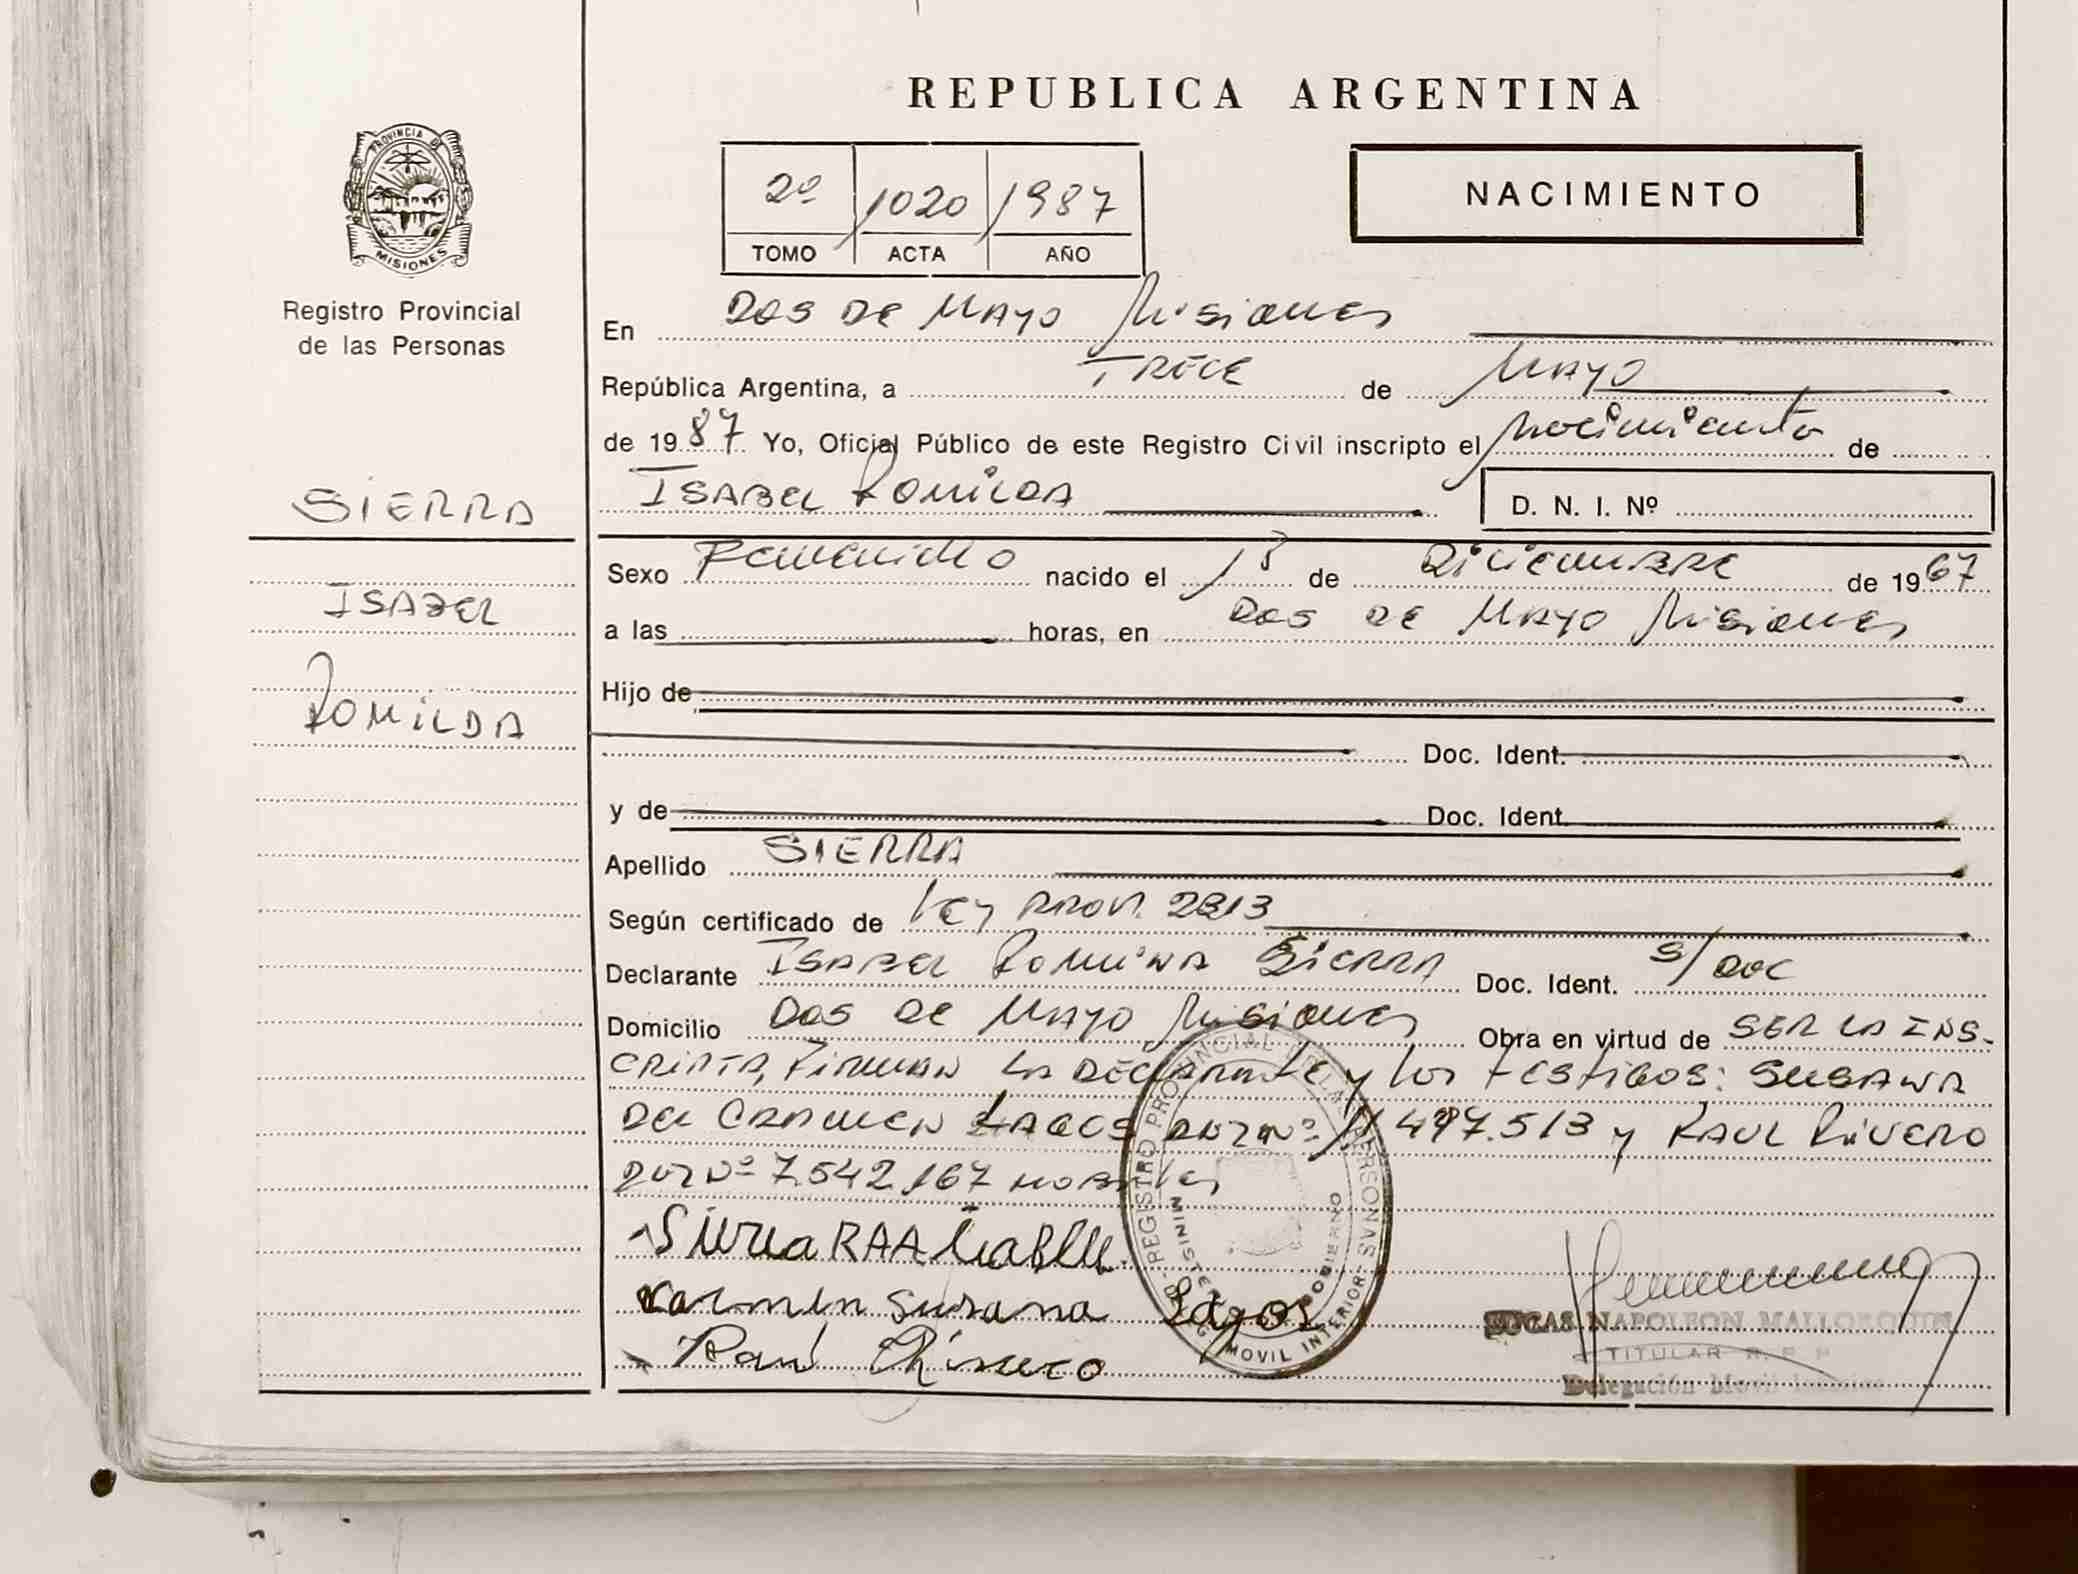 REPUBLICA ARGENTINA
PROVINCIA DE
MISIONES
Registro Provincial
de las Personas
2º 1020 1987
TOMO ACTA AÑO
NACIMIENTO
SIERRA
ISABEL
ROMILDA
En DOS DE MAYO Misiones
República Argentina, a TRECE de MAYO
de 1987 Yo, Oficial Público de este Registro Civil inscripto el Nacimiento de
ISABEL ROMILDA D. N. I. Nº
Sexo Femenino nacido el 13 de DICIEMBRE de 1967
a las horas, en DOS DE MAYO Misiones
Hijo de
Doc. Ident.
y de Doc. Ident.
Apellido SIERRA
Según certificado de Ley PROV. 2313
Declarante ISABEL ROMILDA SIERRA Doc. Ident. S/DOC
Domicilio DOS DE MAYO Misiones Obra en virtud de SER LA INS-
CRIPTA, FIRMAN LA DECLARANTE y los TESTIGOS: SUSANA
DEL CARMEN LAGOS DNI Nº 497.513 y RAUL RIVERO
DNI Nº 7.542.167
Sierra
Carmen Susana Lagos
Raul Rivero
REGISTRO PROVINCIAL DE LAS PERSONAS
MINISTERIO GOBIERNO
MOVIL INTERIOR
LUCAS NAPOLEON MALLORQUIN
TITULAR R. P. P.
Delegación Movil Interior